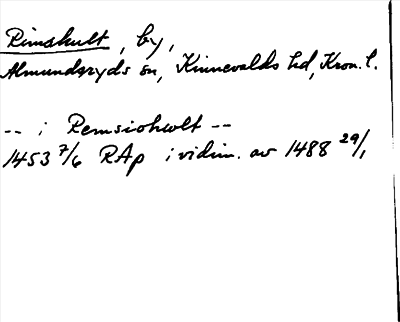 Rimshult, by,
Almundsryds sn, Kinnevalds hd, Kron. l.
-- i Remsiohwlt --
1453 7/6 RAp i vidim. av 1488 29/1